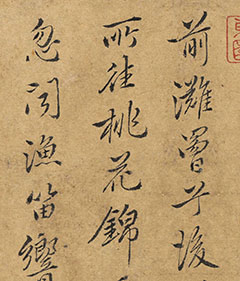 前灘罾兮後
所往桃花錦
忽聞漁笛響